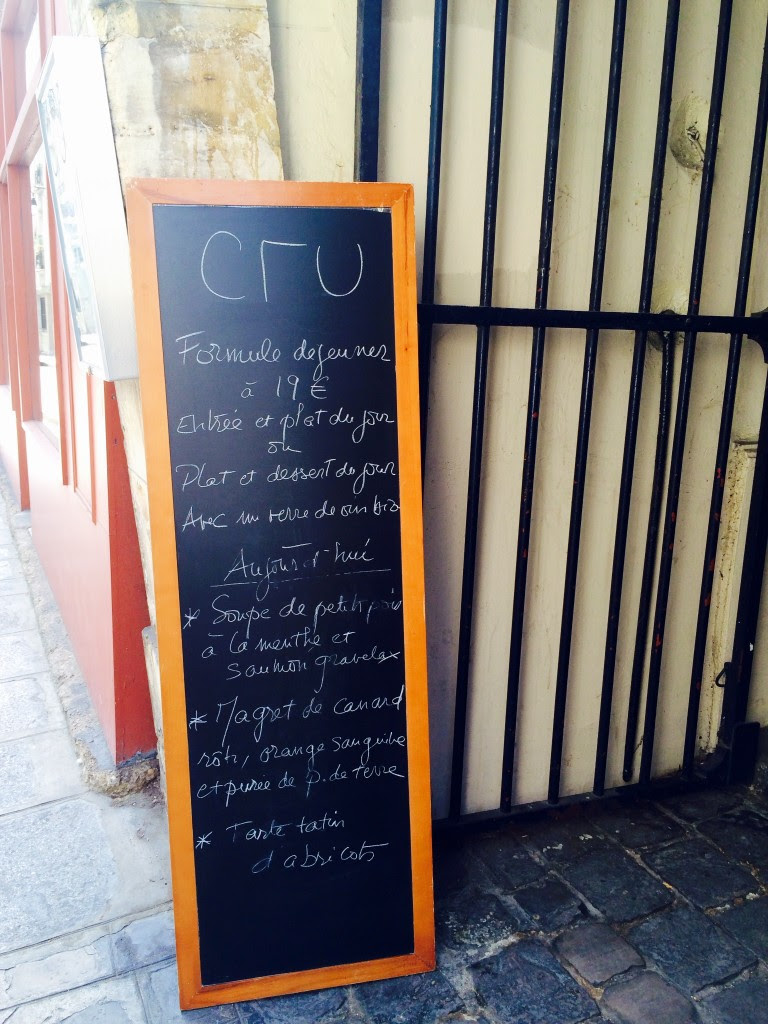 CrU
Formule dejeuner
à 19 €
Entrée et plat du jour
ou
Plat et dessert du jour
Avec un verre de vin bio
Aujourd'hui
* Soupe de petits pois
à la menthe et
saumon gravelax
* Magret de canard
rôti, orange sanguine
et purée de p. de terre
* Tarte tatin
d'abricots